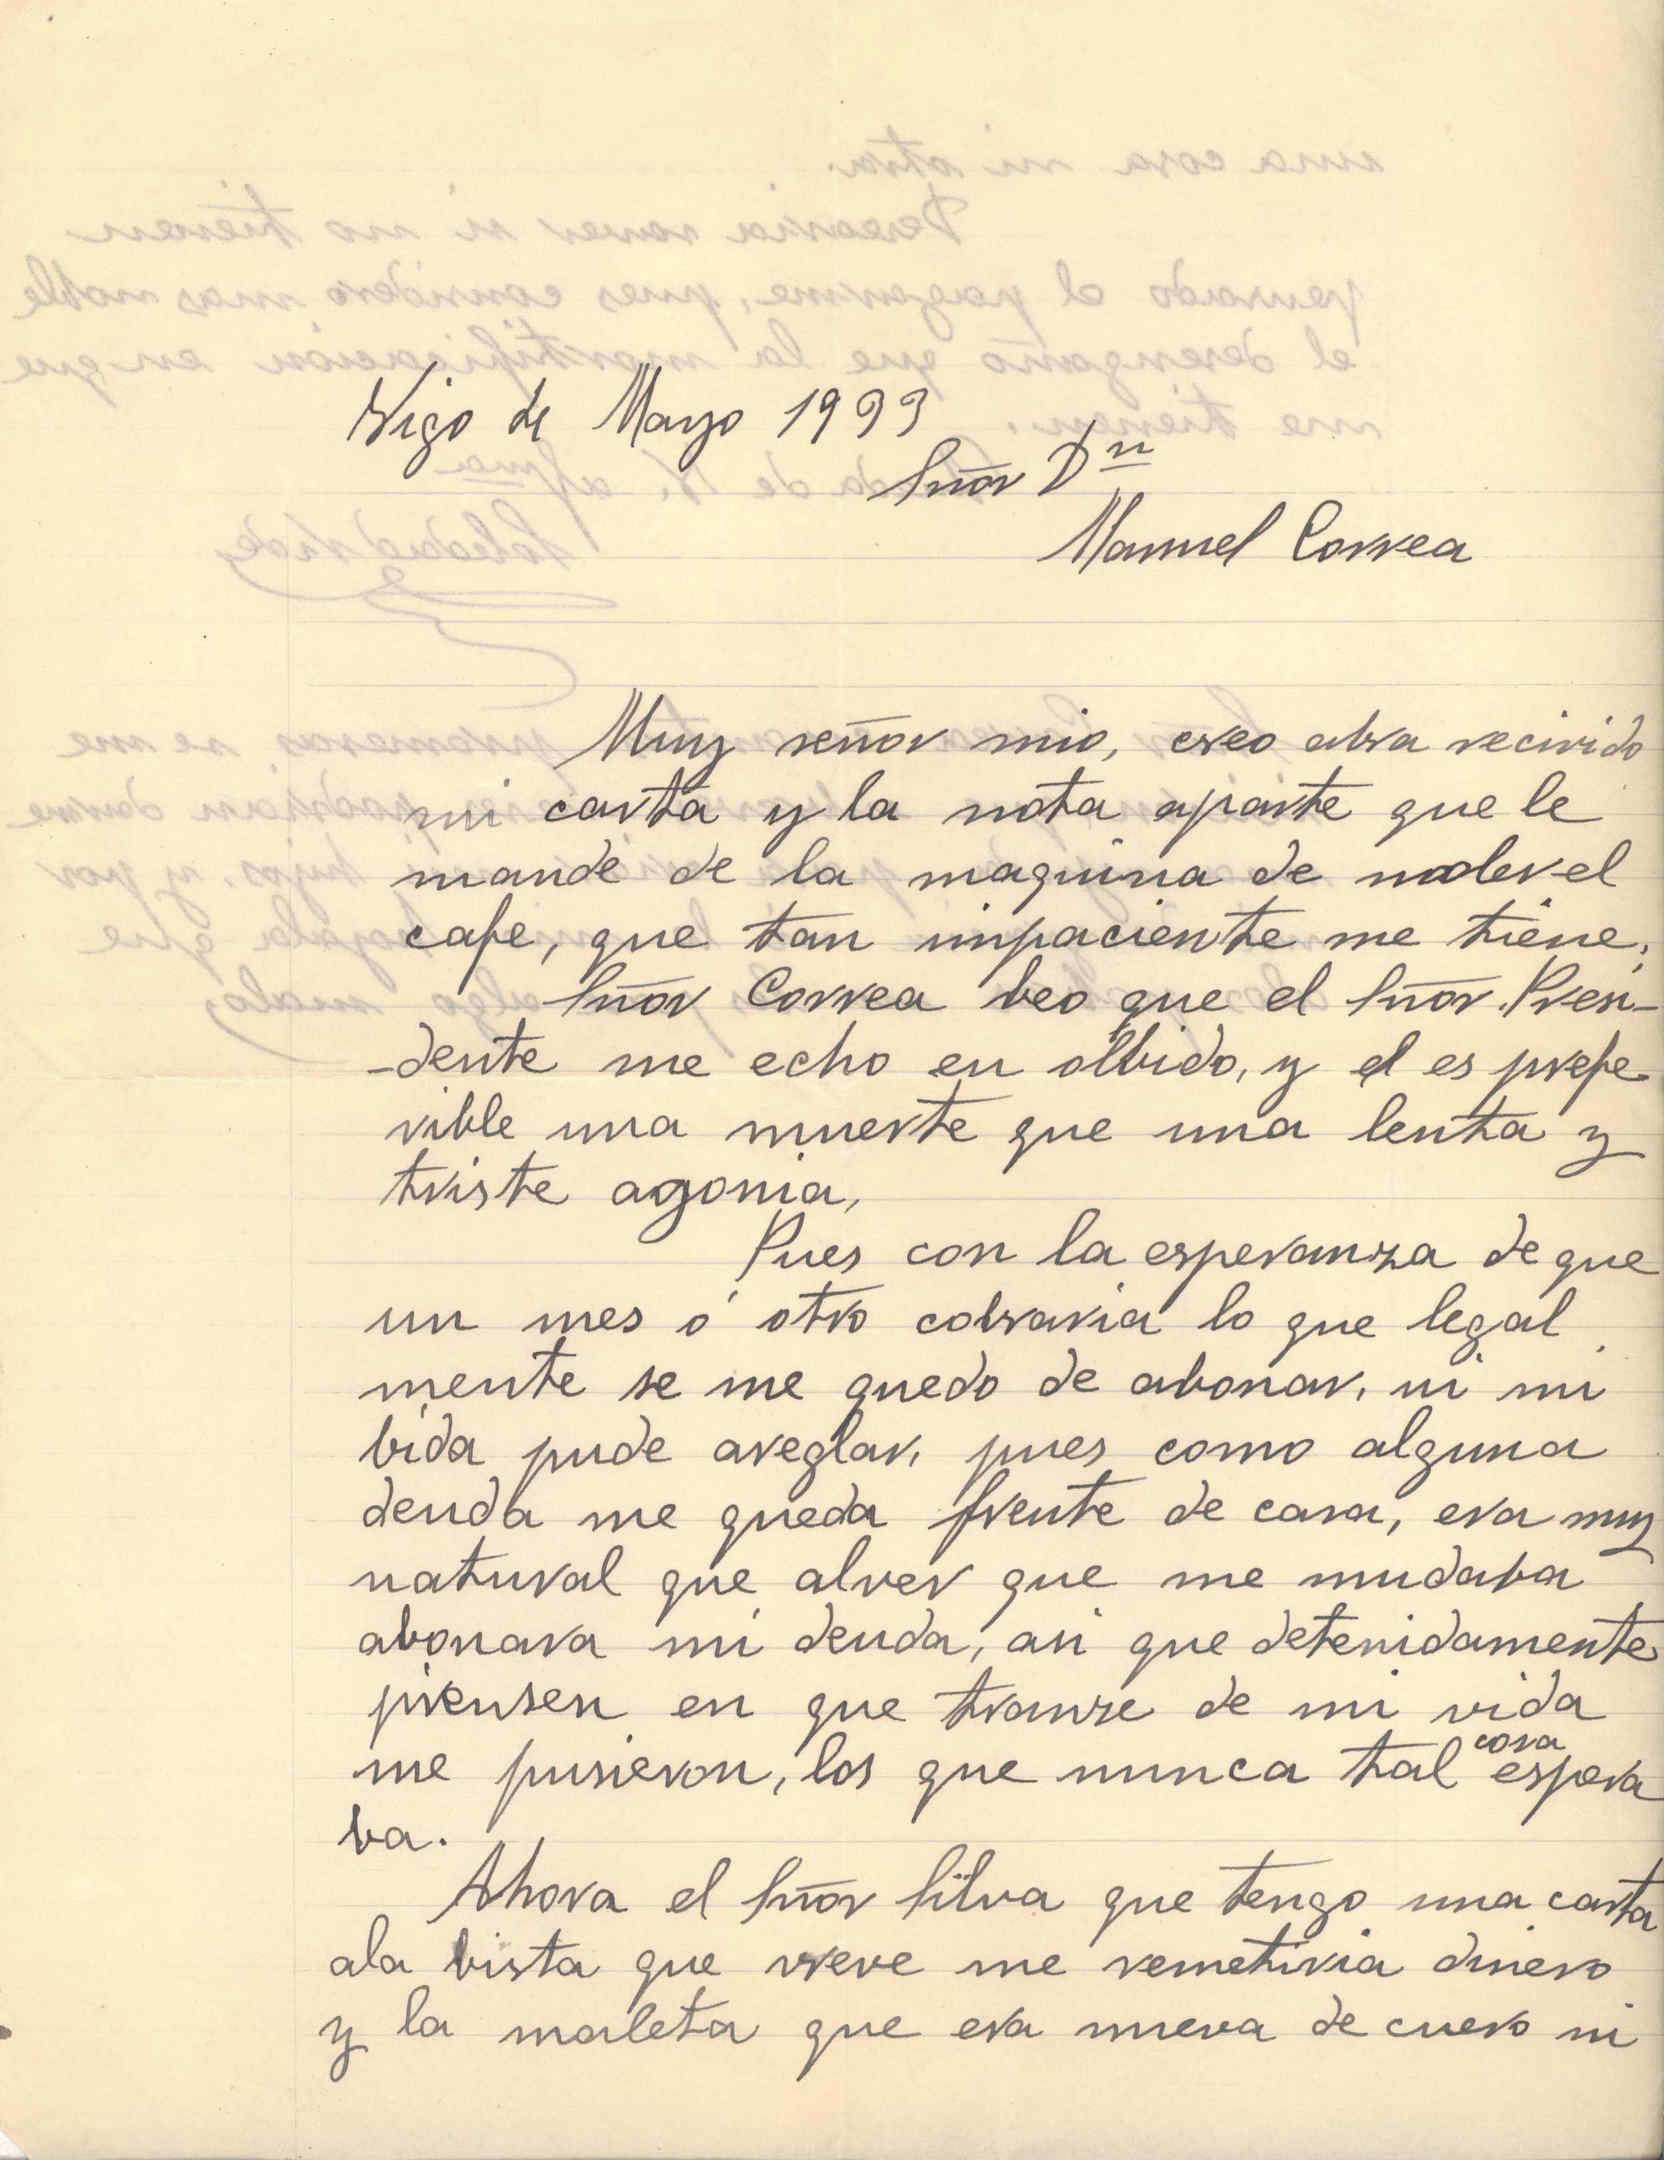 Vigo de Mayo 1933
Señor Dn
Manuel Correa
Muy señor mio, creo abra recivido
mi carta y la nota aparte que le
mande de la maquina de moler el
cafe, que tan impaciente me tiene.
Señor Correa beo que el Señor Presi-
-dente me echo en olbido, y el es prefe
rible una muerte que una lenta y
triste agonia,
Pues con la esperanza de que
un mes ó otro cobraria lo que legal
mente se me quedo de abonar, ni mi
bida pude areglar, pues como alguna
deuda me queda frente de casa, era muy
natural que alver que me mudaba
abonara mi deuda, asi que detenidamente
piensen en que tranze de mi vida
me pusieron, los que nunca tal cosa espera
ba.
Ahora el Señor Silva que tengo una carta
ala bista que breve me remetiria dinero
y la maleta que era nueva de cuero ni